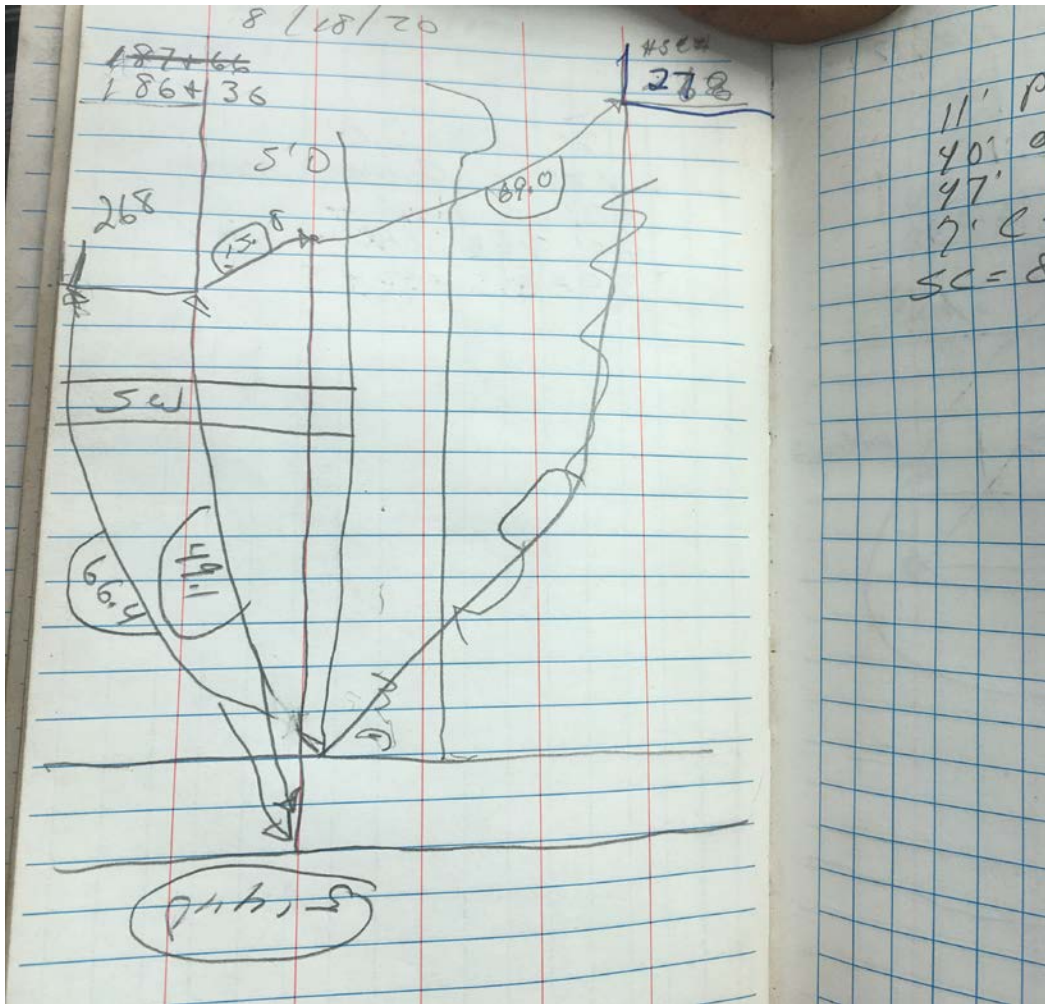 8/18/20
187+66
186+36
HSE#
278
5'D
268
15.8
69.0
SW
66.4
49.1
11' P
40'
47'
7' C
SC = 8